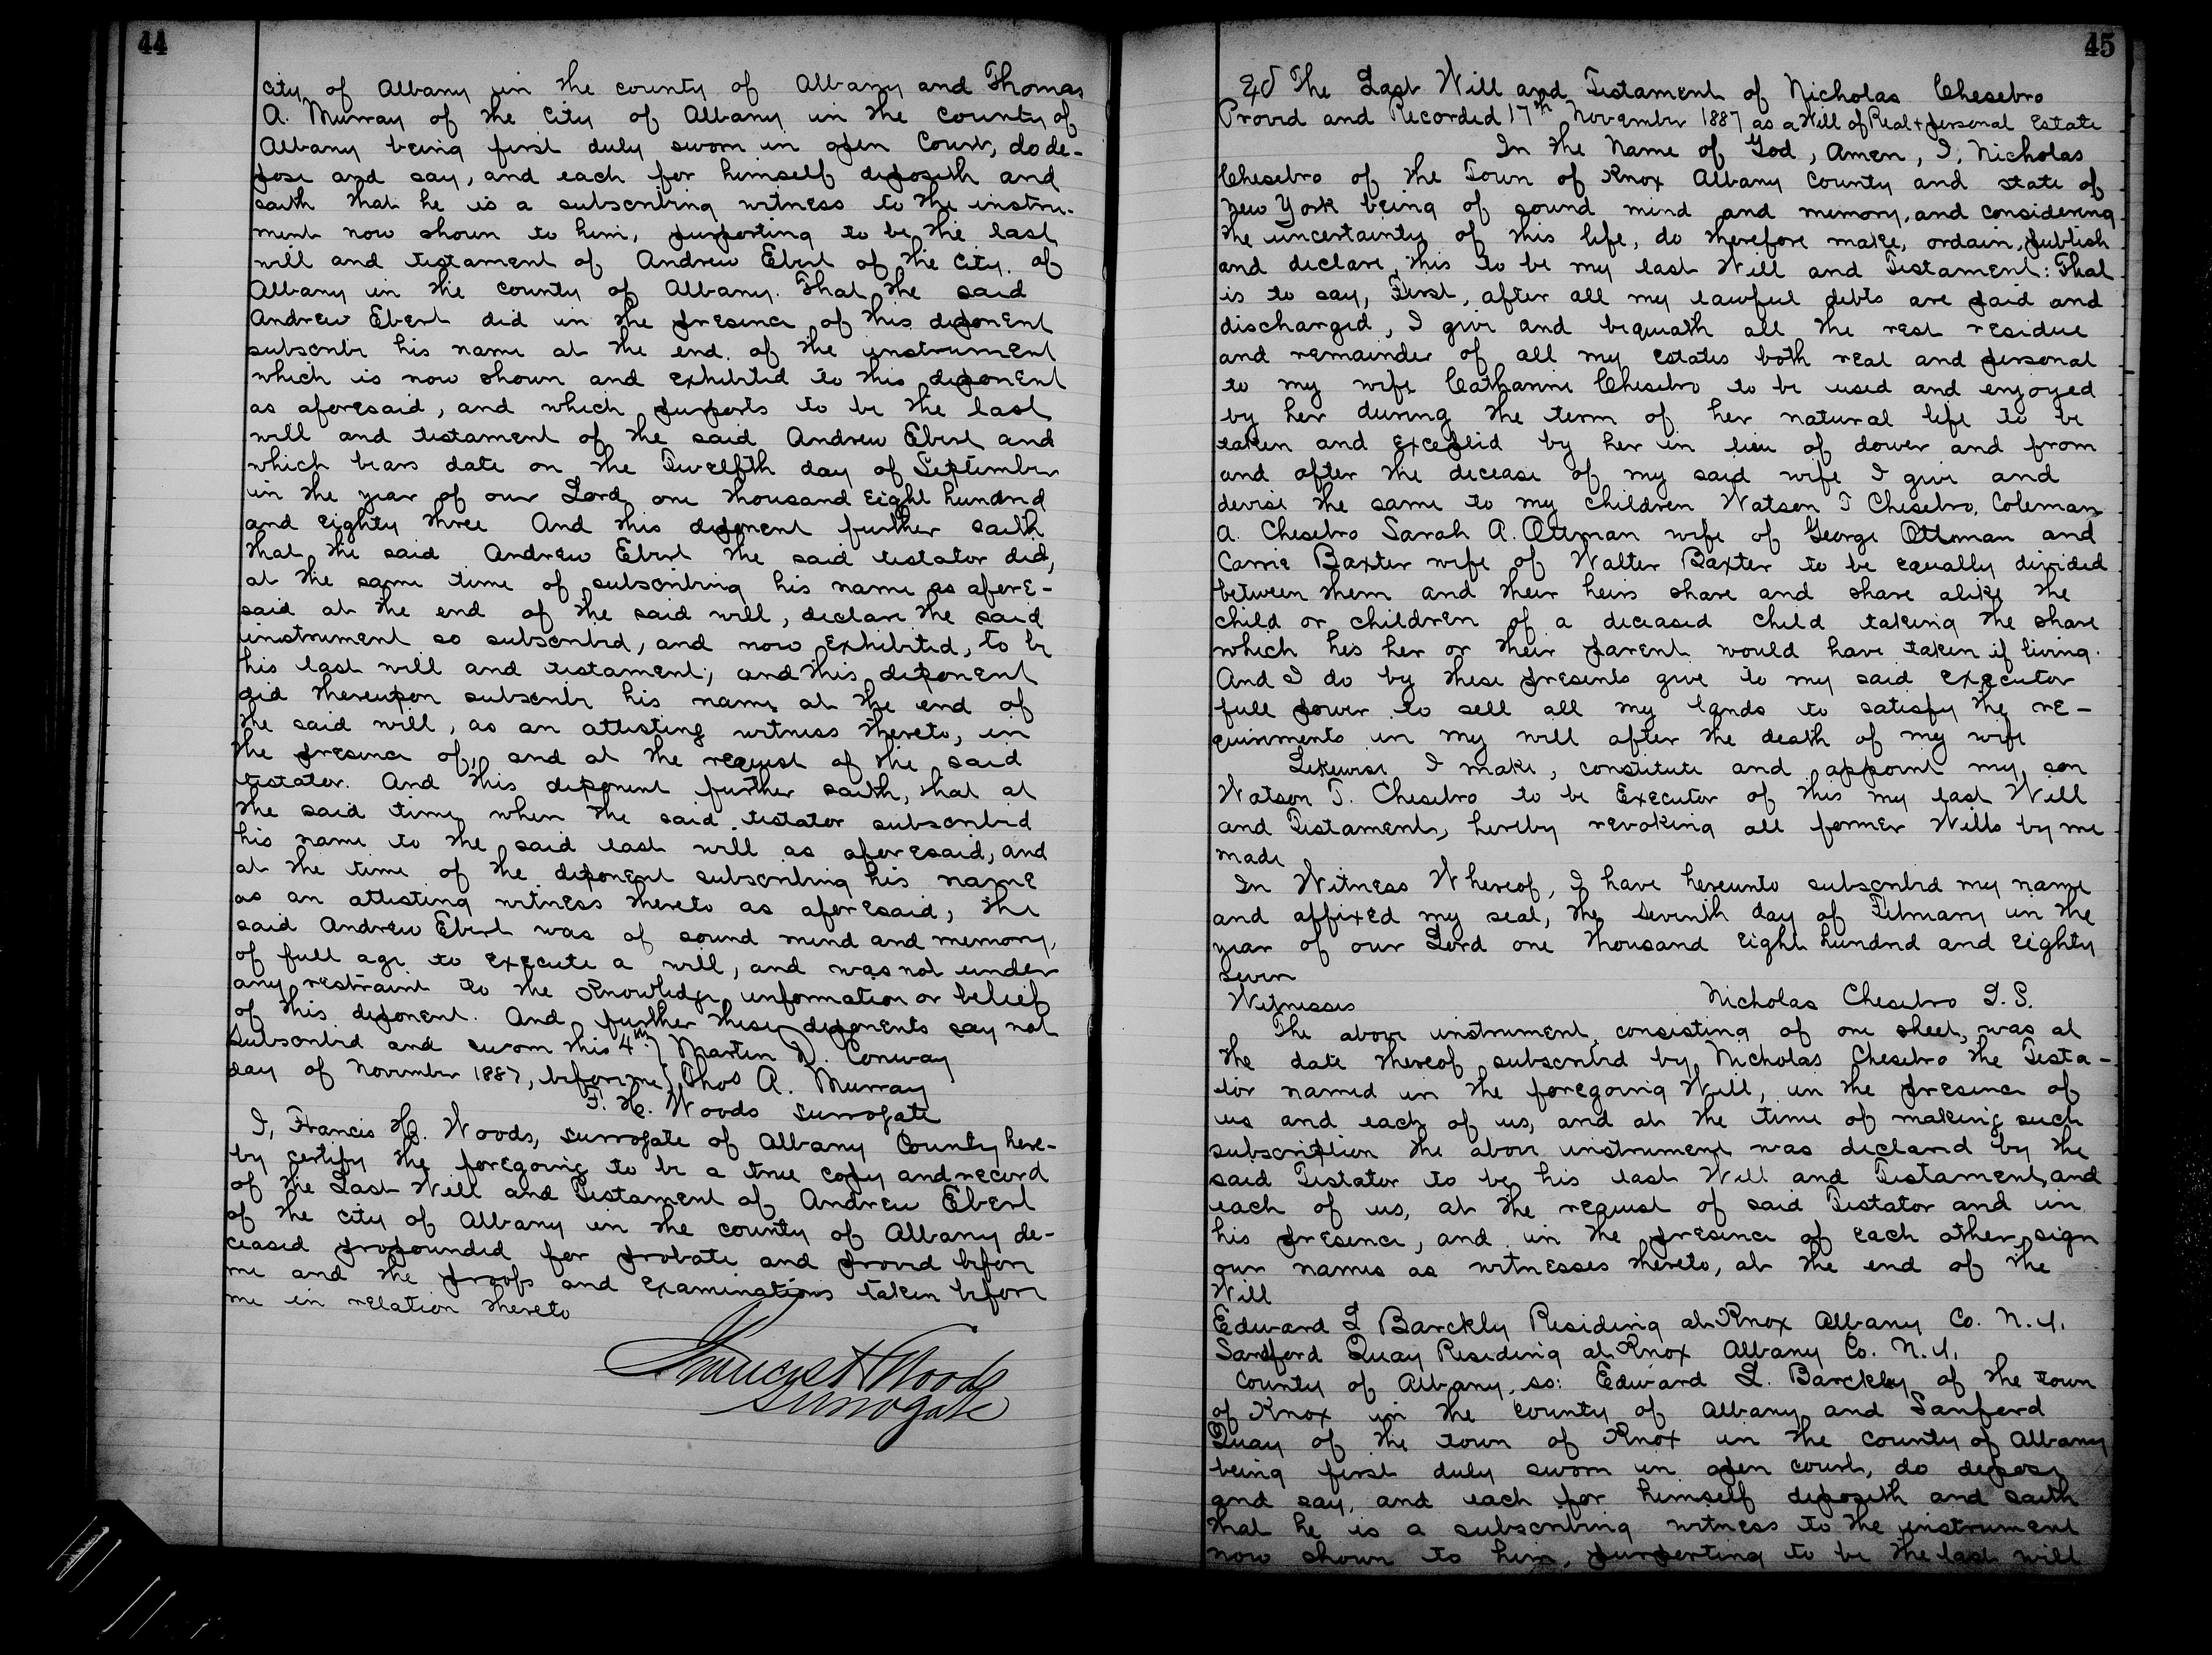 44
city of Albany in the county of Albany and Thomas
A. Murray of the City of Albany in the County of
Albany being first duly sworn in open Court, do de-
pose and say, and each for himself deposeth and
saith that he is a subscribing witness to the instru-
ment now shown to him, purporting to be the last
will and testament of Andrew Ebert of the City of
Albany in the County of Albany. That the said
Andrew Ebert did in the presence of this deponent
subscribe his name at the end of the instrument
which is now shown and exhibited to this deponent
as aforesaid, and which purports to be the last
will and testament of the said Andrew Ebert and
which bears date on the Twelfth day of September
in the year of our Lord one thousand Eight hundred
and Eighty three And this deponent further saith
that the said Andrew Ebert the said testator did,
at the same time of subscribing his name as afore-
said at the end of the said will, declare the said
instrument so subscribed, and now exhibited, to be
his last will and testament; and this deponent
did thereupon subscribe his name at the end of
the said will, as an attesting witness thereto, in
the presence of, and at the request of the said
testator. And this deponent further saith, that at
the said time when the said testator subscribed
his name to the said last will as aforesaid, and
at the time of the deponent subscribing his name
as an attesting witness thereto as aforesaid, the
said Andrew Ebert was of sound mind and memory,
of full age to execute a will, and was not under
any restraint to the knowledge, information or belief
of this deponent. And further these deponents say not
Subscribed and sworn this 4th } Martin D. Conway
day of November 1887, before me } Thos A. Murray
F. H. Woods Surrogate
I, Francis H. Woods, Surrogate of Albany County here-
by certify the foregoing to be a true copy and record
of the Last Will and Testament of Andrew Ebert
of the city of Albany in the county of Albany de-
ceased propounded for probate and proved before
me and the proofs and examinations taken before
me in relation thereto
Francis H Woods
Surrogate
45
The Last Will and Testament of Nicholas Chesebro
Proved and Recorded 17th November 1887 as a Will of Real & personal Estate
In the Name of God, Amen, I, Nicholas
Chesebro of the Town of Knox Albany County and state of
New York being of sound mind and memory, and considering
the uncertainty of this life, do therefore make, ordain, publish
and declare, this to be my last Will and Testament: That
is to say, First, after all my lawful debts are paid and
discharged, I give and bequeath all the rest residue
and remainder of all my estates both real and personal
to my wife Catharine Chesebro to be used and enjoyed
by her during the term of her natural life to be
taken and excepted by her in lieu of dower and from
and after the decease of my said wife I give and
devise the same to my children Watson T Chesebro, Coleman
A. Chesebro Sarah A. Ottman wife of George Ottman and
Carrie Baxter wife of Walter Baxter to be equally divided
between them and their heirs share and share alike the
child or children of a deceased child taking the share
which his her or their parent would have taken if living.
And I do by these presents give to my said Executor
full power to sell all my lands to satisfy the re-
quirements in my will after the death of my wife
Likewise I make, constitute and appoint my son
Watson T. Chesebro to be Executor of this my last Will
and Testament, hereby revoking all former Wills by me
made
In Witness Whereof, I have hereunto subscribed my name
and affixed my seal, the seventh day of February in the
year of our Lord one thousand eight hundred and eighty
seven
Witnesses Nicholas Chesebro L.S.
The above instrument, consisting of one sheet, was at
the date thereof subscribed by Nicholas Chesebro the Testa-
tor named in the foregoing Will, in the presence of
us and each of us, and at the time of making such
subscription the above instrument was declared by the
said Testator to be his last Will and Testament, and
each of us, at the request of said Testator and in
his presence, and in the presence of each other, sign
our names as witnesses thereto, at the end of the
Will
Edward L Barckly Residing at Knox Albany Co. N.Y.
Sandford Quay Residing at Knox Albany Co. N.Y.
County of Albany, ss: Edward L. Barckley of the town
of Knox in the County of Albany and Sanford
Quay of the town of Knox in the County of Albany
being first duly sworn in open court, do depose
and say, and each for himself deposeth and saith
that he is a subscribing witness to the instrument
now shown to him, purporting to be the last will